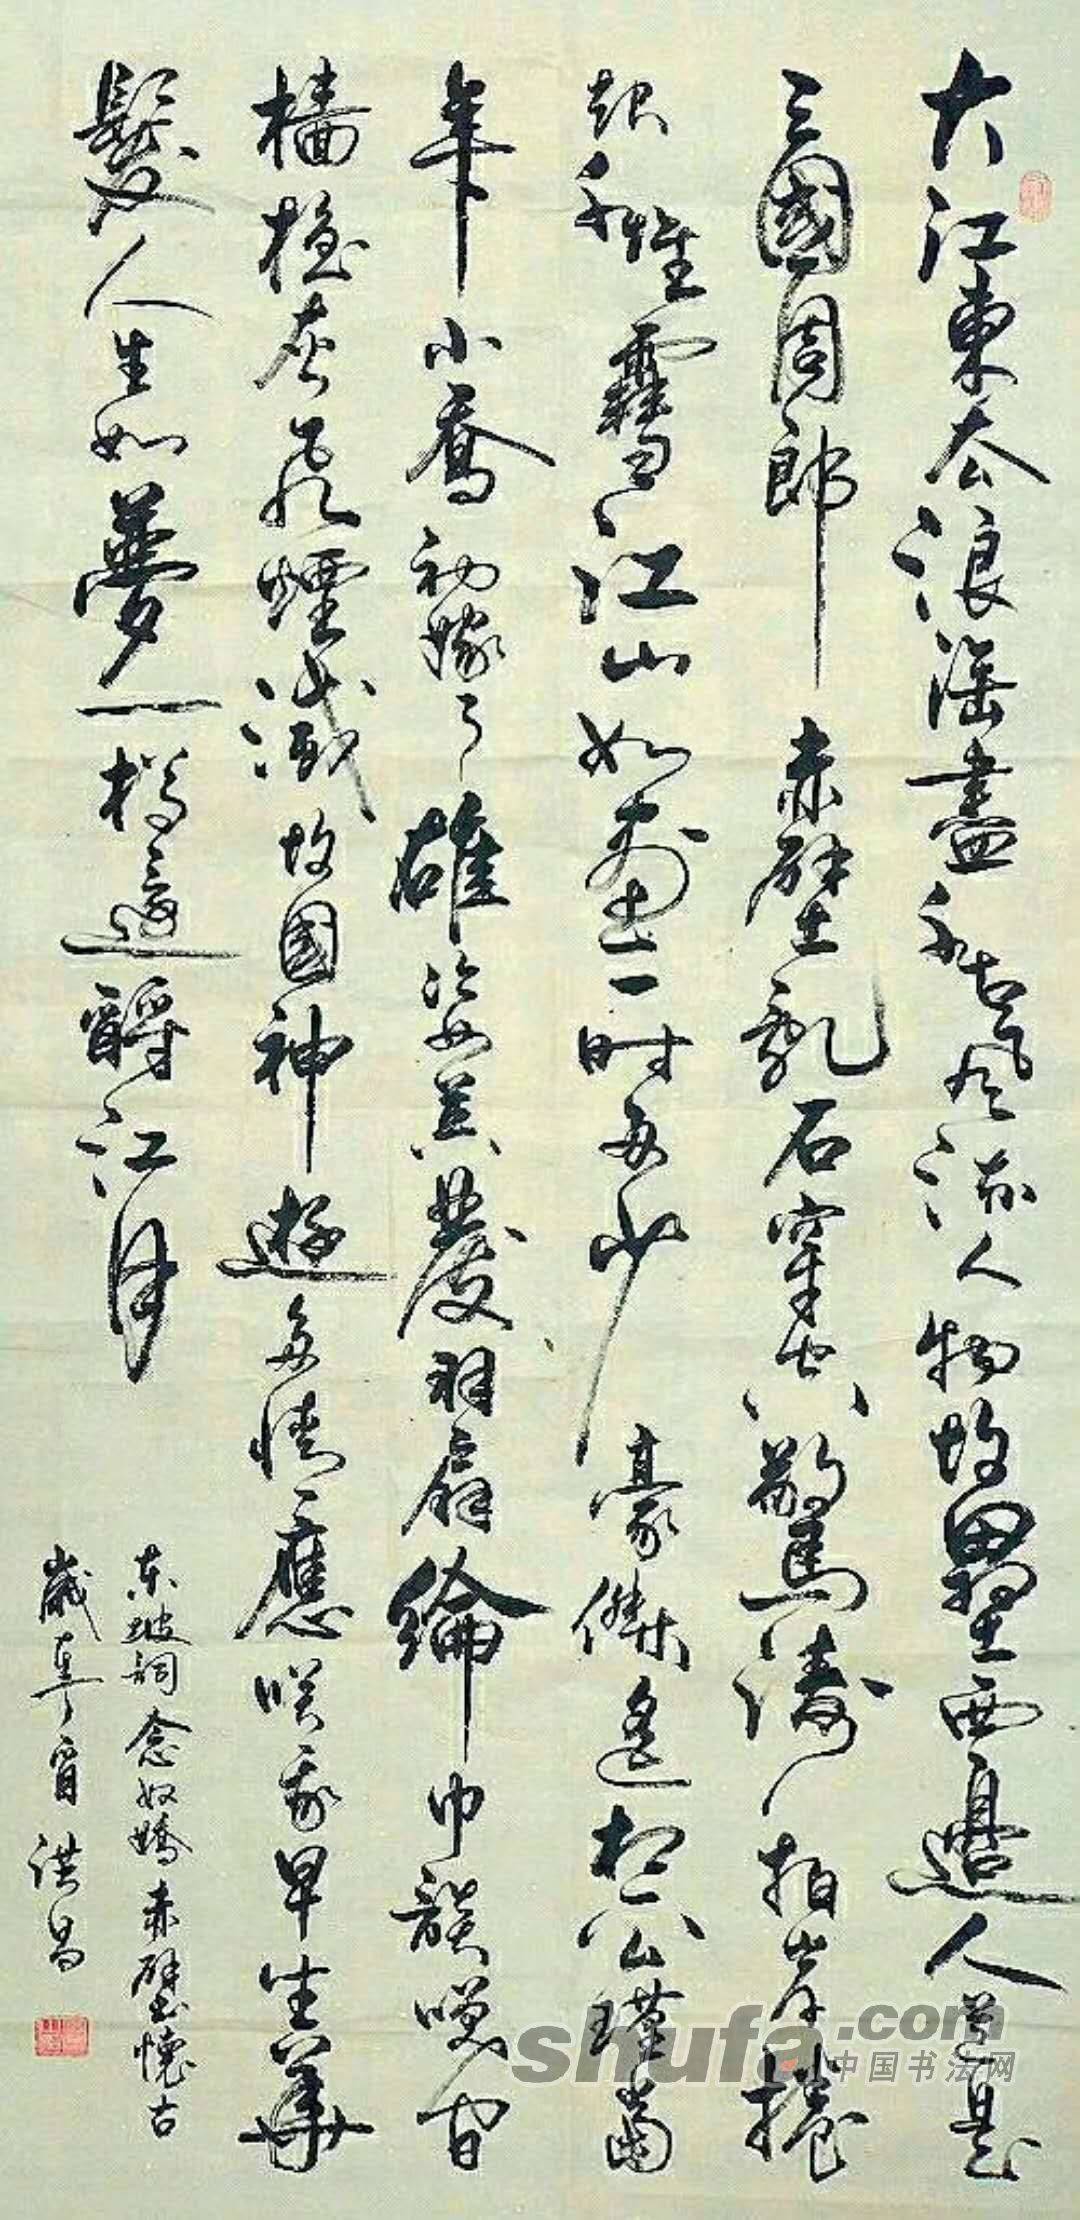 大江東去浪淘盡千古風流人物故壘西邊人道是
三國周郎赤壁亂石穿空驚濤拍岸捲
起千堆雪江山如畫一時多少豪傑遙想公瑾當
年小喬初嫁了雄姿英發羽扇綸巾談咲間
檣櫓灰飛煙滅故國神遊多情應咲我早生華
髮人生如夢一樽還酹江月
东坡詞念奴嬌赤壁懷古
歲洪昌
shufa.com
中国书法网